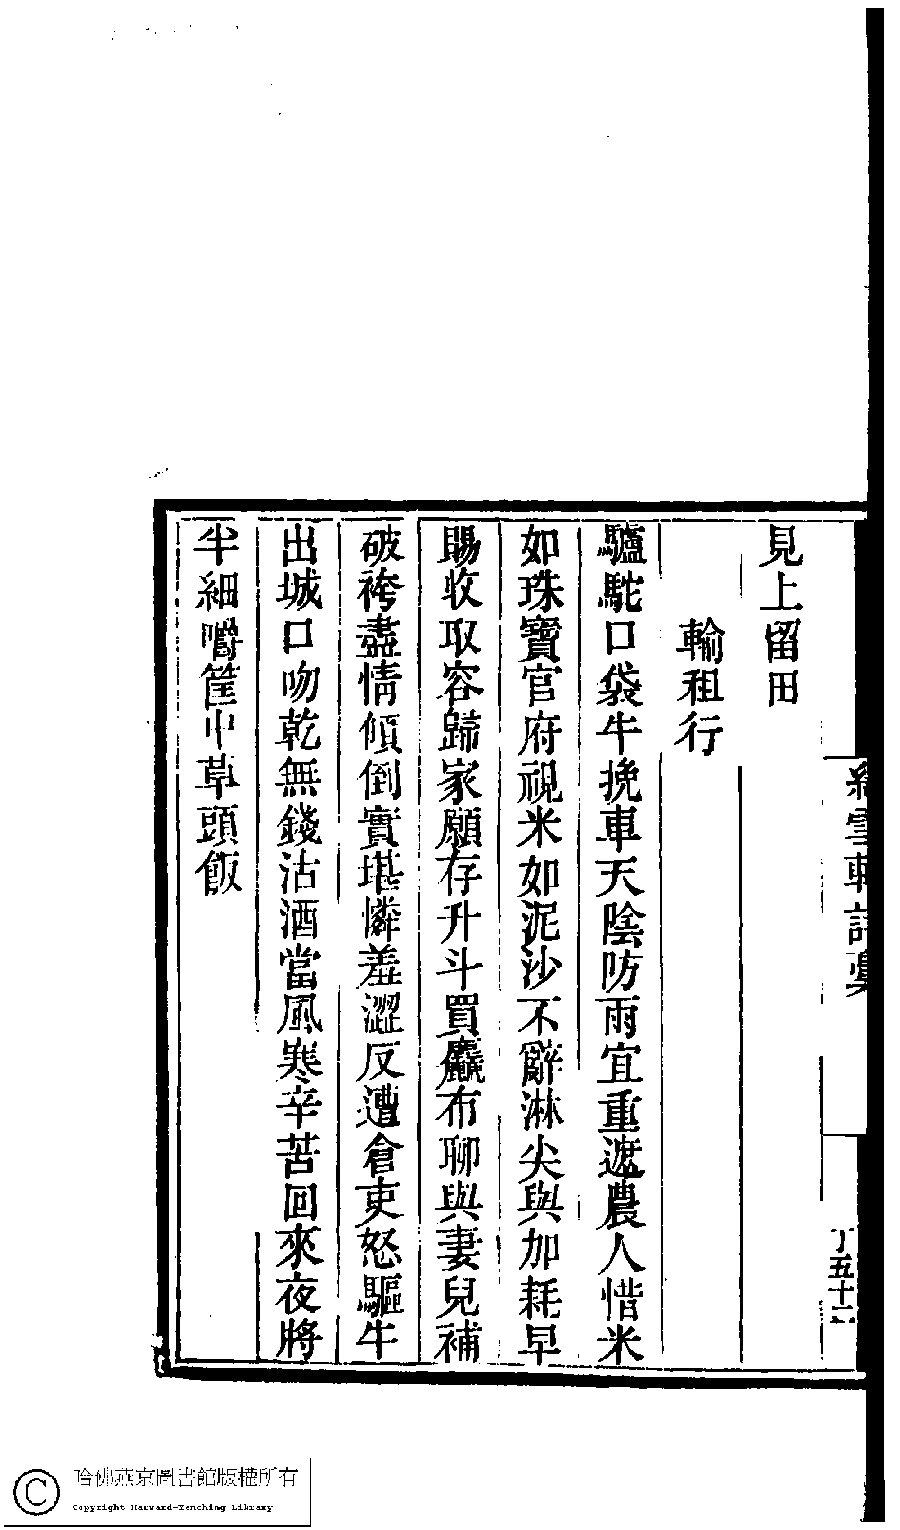 見上留田
輸租行
驢駝口袋牛挽車天陰防雨宜重遮農人惜米
如珠寶官府視米如泥沙不辭淋尖與加耗早
賜收取容歸家願存升斗買麤布聊與妻兒補
破袴盡情傾倒實堪憐羞澀反遭倉吏怒驅牛
出城口吻乾無錢沽酒當風寒辛苦回來夜將
半細嚼筐中草頭飯
雪
丁五十
哈佛燕京圖書館版權所有
Copyright Harvard-Yenching Library